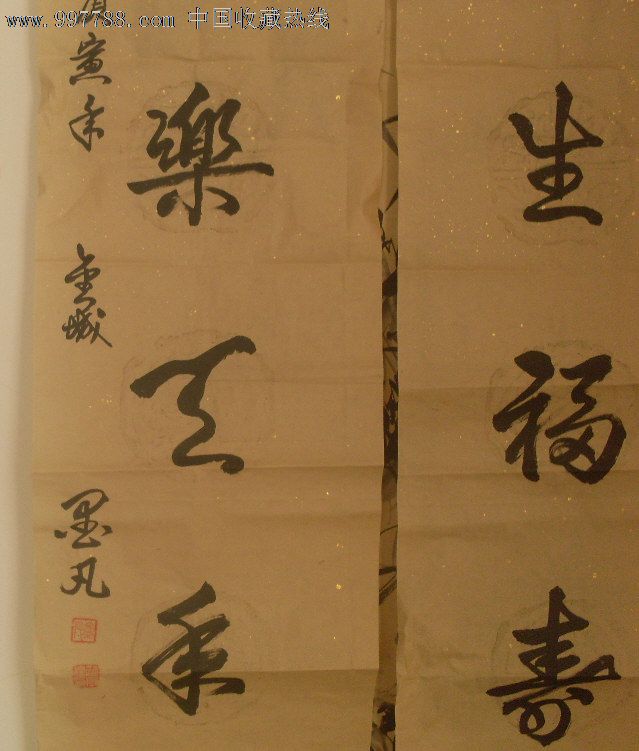 www.997788.com 中国收藏热线
生福寿
樂天年
寅年 金城 墨凡